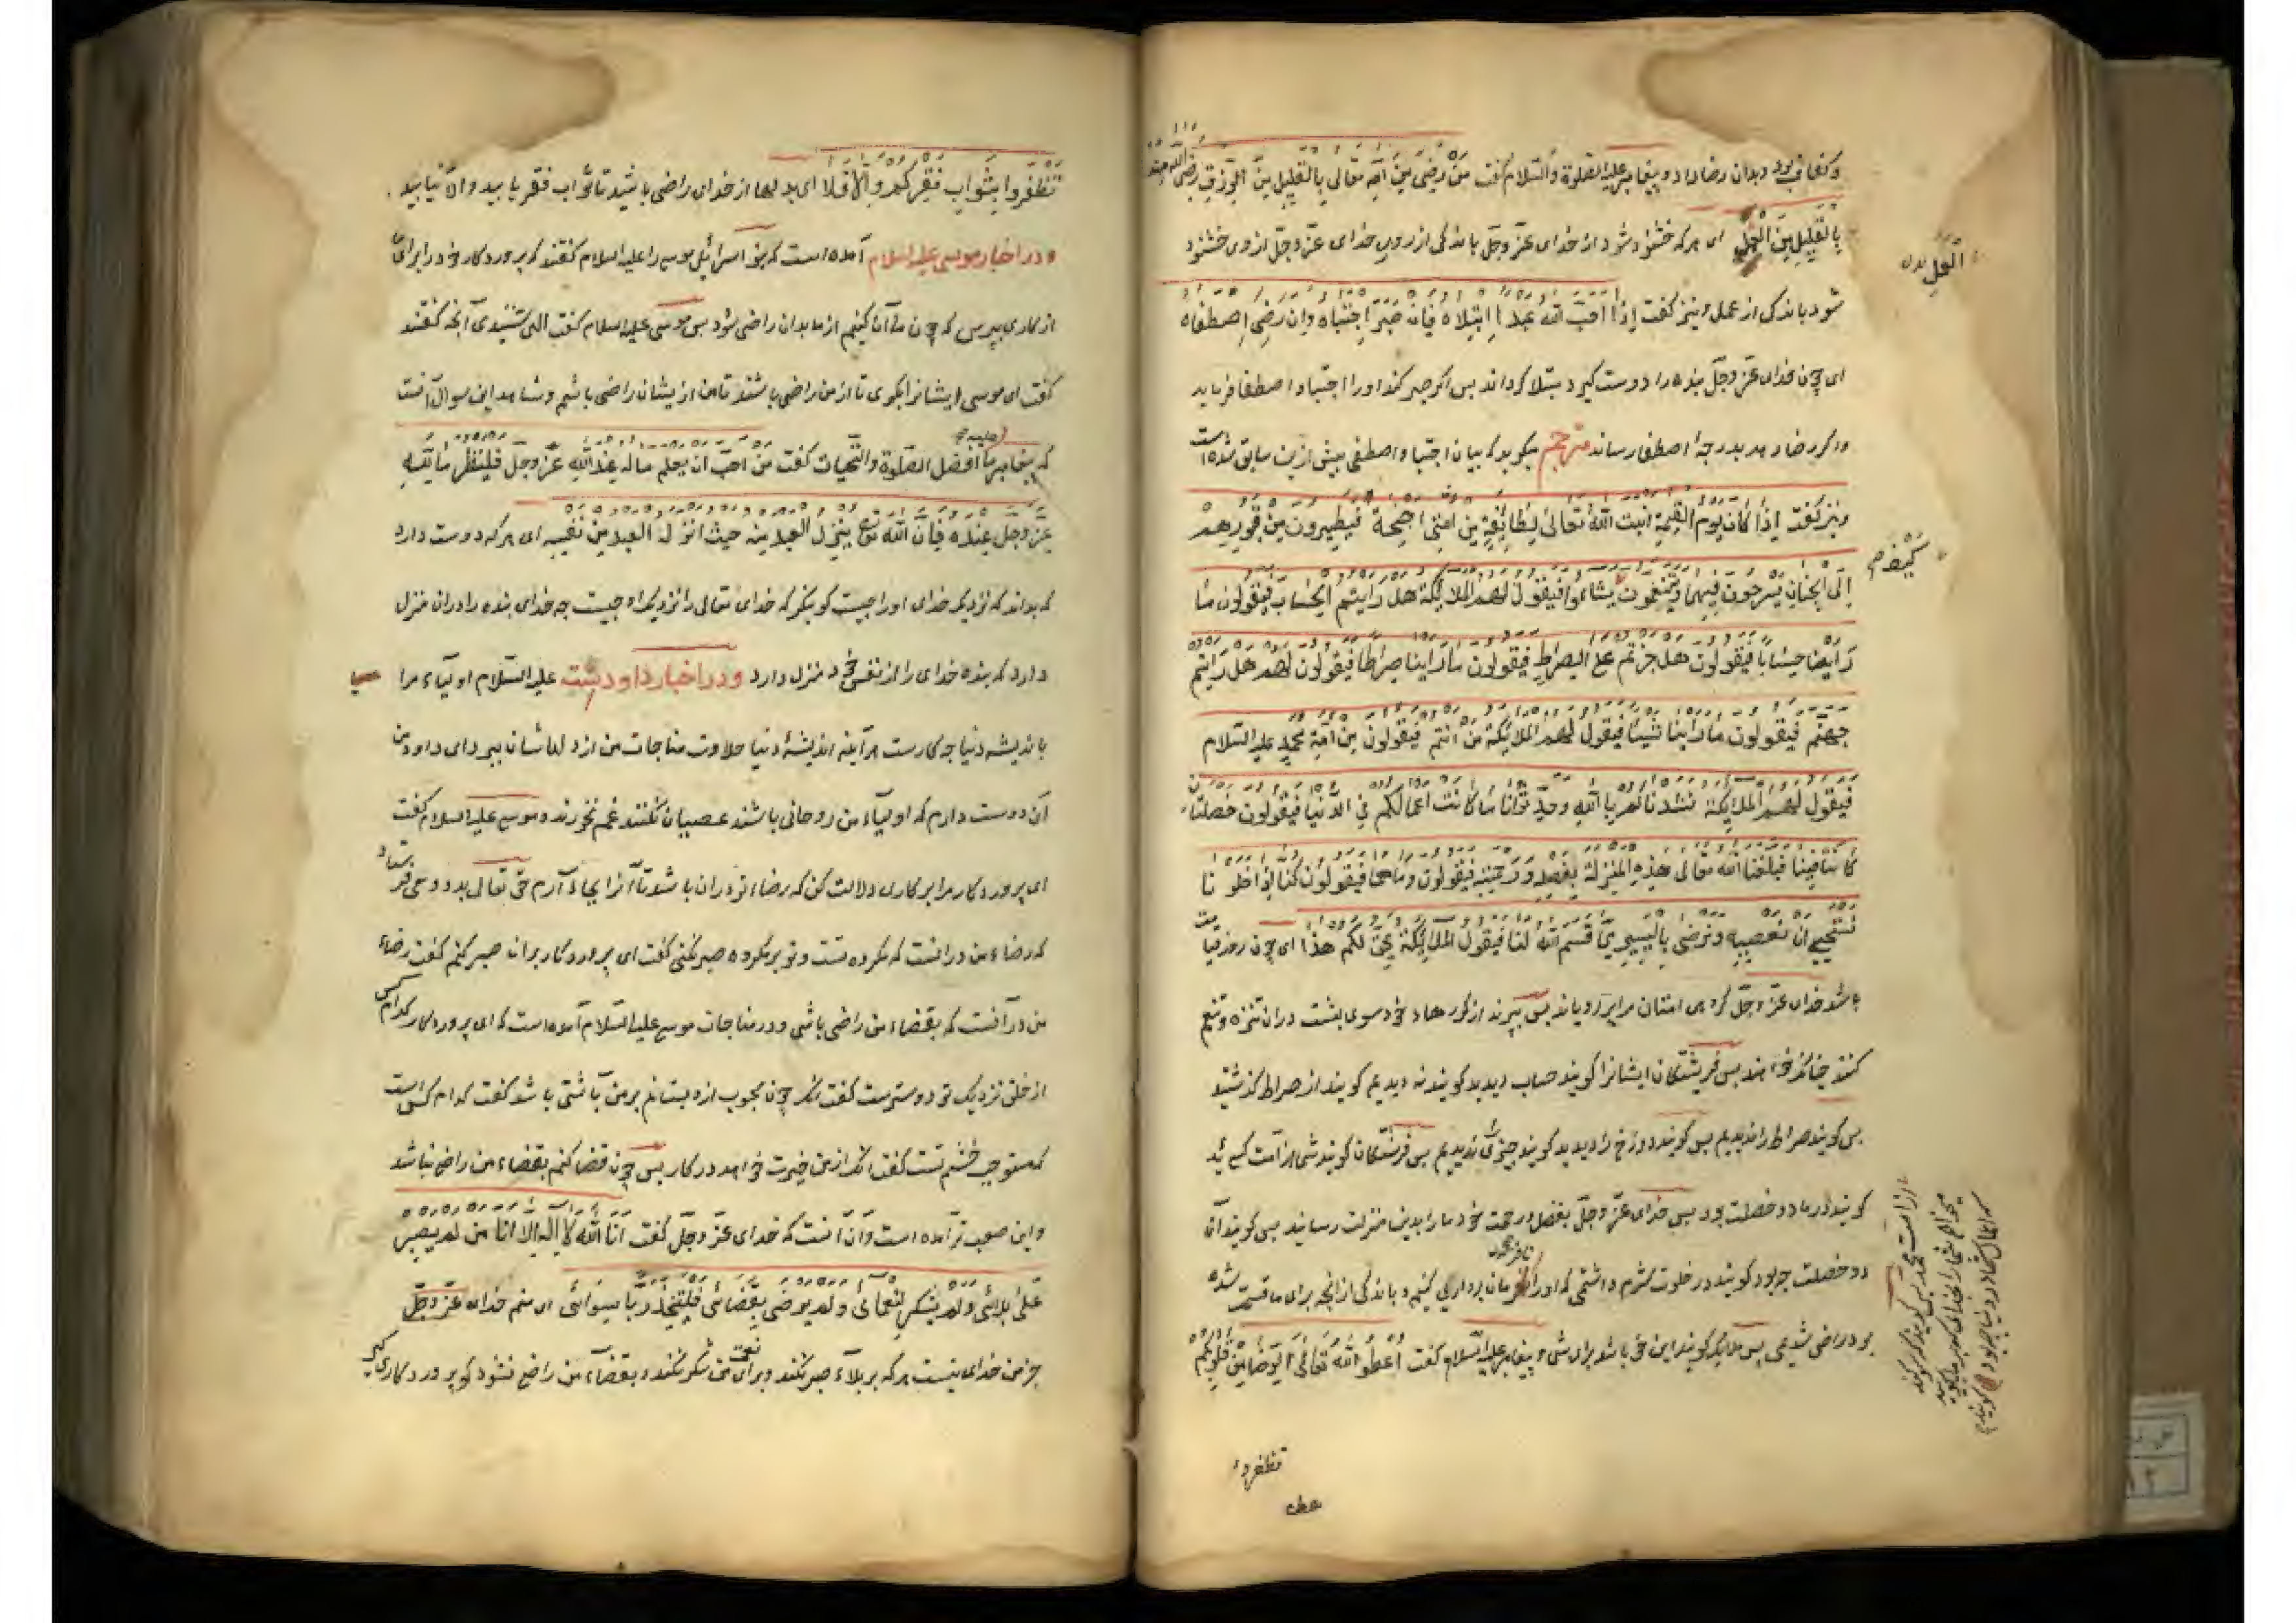 و کفاف بود و بدان رضا داد و پیغامبر علیه الصلوة والسلام گفت مَنْ رَضِیَ مِنَ اللهِ تَعَالی بِالْقَلِیلِ مِنَ الرِّزْقِ رَضِیَ اللهُ مِنْهُ
بِالْقَلِیلِ مِنَ الْعَمَلِ ای هر که خشنود شود از خدای عزّ وجلّ باندکی از روزی خدای عزّ وجلّ از وی خشنود
العمل
شود باندکی از عمل و نیز گفت إِذَا أَحَبَّ اللهُ عَبْدًا ابْتَلَاهُ فَإِنْ صَبَرَ اجْتَبَاهُ وَإِنْ رَضِیَ اصْطَفَاهُ
ای چون خدای عزّ وجلّ بنده را دوست گیرد مبتلا گرداند پس اگر صبر کند او را اجتبا و اصطفا فرماید
و اگر رضا دهد بدرجهٔ اصطفا رساند مترجم میگوید که بیان اجتبا و اصطفی پیش ازین سابق شده است
و نیز گفت إِذَا کَانَ یَوْمُ الْقِیمَةِ أَنْبَتَ اللهُ تَعَالَی لِطَائِفَةٍ مِنْ أُمَّتِی أَجْنِحَةً فَیَطِیرُونَ مِنْ قُبُورِهِمْ
إِلَی الْجِنَانِ یَسْرَحُونَ فِیهَا وَیَتَنَعَّمُونَ یشاءوا فَیَقُولُ لَهُمُ الْمَلَائِکَةُ هَلْ رَأَیْتُمُ الْحِسَابَ فَیَقُولُونَ مَا
رَأَیْنَا حِسَابًا فَیَقُولُونَ هَلْ جُزْتُمْ عَلَی الصِّرَاطِ فَیَقُولُونَ مَا رَأَیْنَا صِرَاطًا فَیَقُولُونَ لَهُمْ هَلْ رَأَیْتُمْ
جَهَنَّمَ فَیَقُولُونَ مَا رَأَیْنَا شَیْئًا فَیَقُولُ لَهُمُ الْمَلَائِکَةُ مَنْ أَنْتُمْ فَیَقُولُونَ مِنْ أُمَّةِ مُحَمَّدٍ علیه السلام
فَیَقُولُ لَهُمُ الْمَلَائِکَةُ نشدناکم بِاللهِ وحدّثونا مَا کَانَتْ أَعْمَالُکُمْ فِی الدُّنْیَا فَیَقُولُونَ خَصْلَتَانِ
کَانَتَا فِینَا فَبَلَّغَنَا اللهُ تَعَالَی هَذِهِ الْمَنْزِلَةَ بِفَضْلِهِ وَرَحْمَتِهِ فَیَقُولُونَ وَمَا هُمَا فَیَقُولُونَ کُنَّا إِذَا خَلَوْنَا
نَسْتَحْیِی أَنْ نَعْصِیَهُ وَنَرْضَی بِالْیَسِیرِ مِمَّا قَسَمَ اللهُ لَنَا فَیَقُولُ الْمَلَائِکَةُ یَحِقُّ لَکُمْ هَذَا ای چون روز قیامت
باشد خدای عزّ وجلّ گروهی امتان مرا پر رویاند پس بپرند از گورهاء خود سوی بهشت در ان تنزه و تنعم
کنند چنانکه خواهند پس فریشتکان ایشانرا گویند حساب دیدید گویند نه دیدیم گویند از صراط گذشتید
پس گویند صراط را ندیدیم پس گویند دوزخ را دیدید گویند چیزی را ندیدیم پس فریشتکان گویند شما از امت کیئید
گویند در ما دو خصلت بود پس خدای عزّ وجلّ بفضل و رحمت خود ما را بدین منزلت رسانید پس گویند آن
دو خصلت چه بود گویند در خلوت شرم داشتمی که او را نافرمان برداری کنیم و باندکی از انچه برای ما قسمت شده
بود راضی شدیمی پس ملایک گویند این حق باشد برای شما و پیغامبر علیه السلام گفت أَعْطُوا اللهَ تَعَالَی الرِّضَا مِنْ قُلُوبِکُمْ
از امت محمد پس گویند
میخواهم شما را بخدای که
که اعمال شما در دنیا چه بود گویند
تظفروا
تَظْفَرُوا بِثَوَابِ فَقْرِکُمْ وَإِلَّا فَلَا ای بدلها از خدای راضی باشید تا ثواب فقر یابید و الّا نیابید
و در اخبار موسی علیه السلام آمده است که بنو اسرائیل موسی را علیه السلام گفتند که پروردکار خود را برای ما
از کاری بپرس که چون ما آن کنیم از ما بدان راضی شود پس موسی علیه السلام گفت الهی شنیدی آنچه گفتند
گفت ای موسی ایشانرا بگوی تا از من راضی باشند تا من از یشان راضی باشم و شاهد این سوال آنست
که پیغامبر ما افضل الصلوة والتحیات گفت مَنْ أَحَبَّ أَنْ یَعْلَمَ مَا لَهُ عِنْدَ اللهِ عَزَّ وَجَلَّ فَلْیَنْظُرْ مَا لِلّهِ
عَزَّ وَجَلَّ عِنْدَهُ فَإِنَّ اللهَ تع یُنْزِلُ الْعَبْدَ مِنْهُ حَیْثُ أَنْزَلَهُ الْعَبْدُ مِنْ نَفْسِهِ ای هر که دوست دارد
که بداند که نزدیک خدای او را چیست گو بنگر که خدای تعالی را نزدیک او چیست چه خدای بنده را در ان منزل
دارد که بنده خدای را از نفس خود منزل دارد و در اخبار داود است علیه السلام اولیاء مرا
باندیشه دنیا چه کارست هر آینه اندیشهٔ دنیا حلاوت مناجات من از دلهاشان ببرد ای داود من
آن دوست دارم که اولیاء من روحانی باشند عصیان نکنند غم نخورند و موسی علیه السلام گفت
ای پروردکار مرا بر کاری دلالت کن که رضاء تو در ان باشد تا آنرا بجای آرم حق تعالی بدو وحی فرستاد
که رضاء من در انست که مکروه تست و تو بر مکروه صبر نکنی گفت ای پروردکار بران صبر کنم گفت رضاء
من در آنست که بقضاء من راضی باشی و در مناجات موسی علیه السلام آمده است که ای پروردکار کدام کس
از خلق نزدیک تو دوسترست گفت آنکه چون محبوب ازو بستانم بر من با شتی باشد گفت کدام کس است
که مستوجب خشم تست گفت آنک از من خیرت خواهد در کار پس چون قضا کنم بقضاء من راضی نباشد
و این صعب تر آمده است و آن آنست که خدای عزّ وجلّ گفت أَنَا اللهُ لَا إِلَهَ إِلَّا أَنَا مَنْ لَمْ یَصْبِرْ
عَلَی بَلَائِی وَلَمْ یَشْکُرْ لِنَعْمَائِی وَلَمْ یَرْضَ بِقَضَائِی فَلْیَتَّخِذْ رَبًّا سِوَائِی ای منم خدای عزّ وجلّ
جز من خدای نیست هر که بر بلاء صبر نکند و برای نعمت من شکر نکند و بقضاء من راضی نشود گو پروردکاری گیر